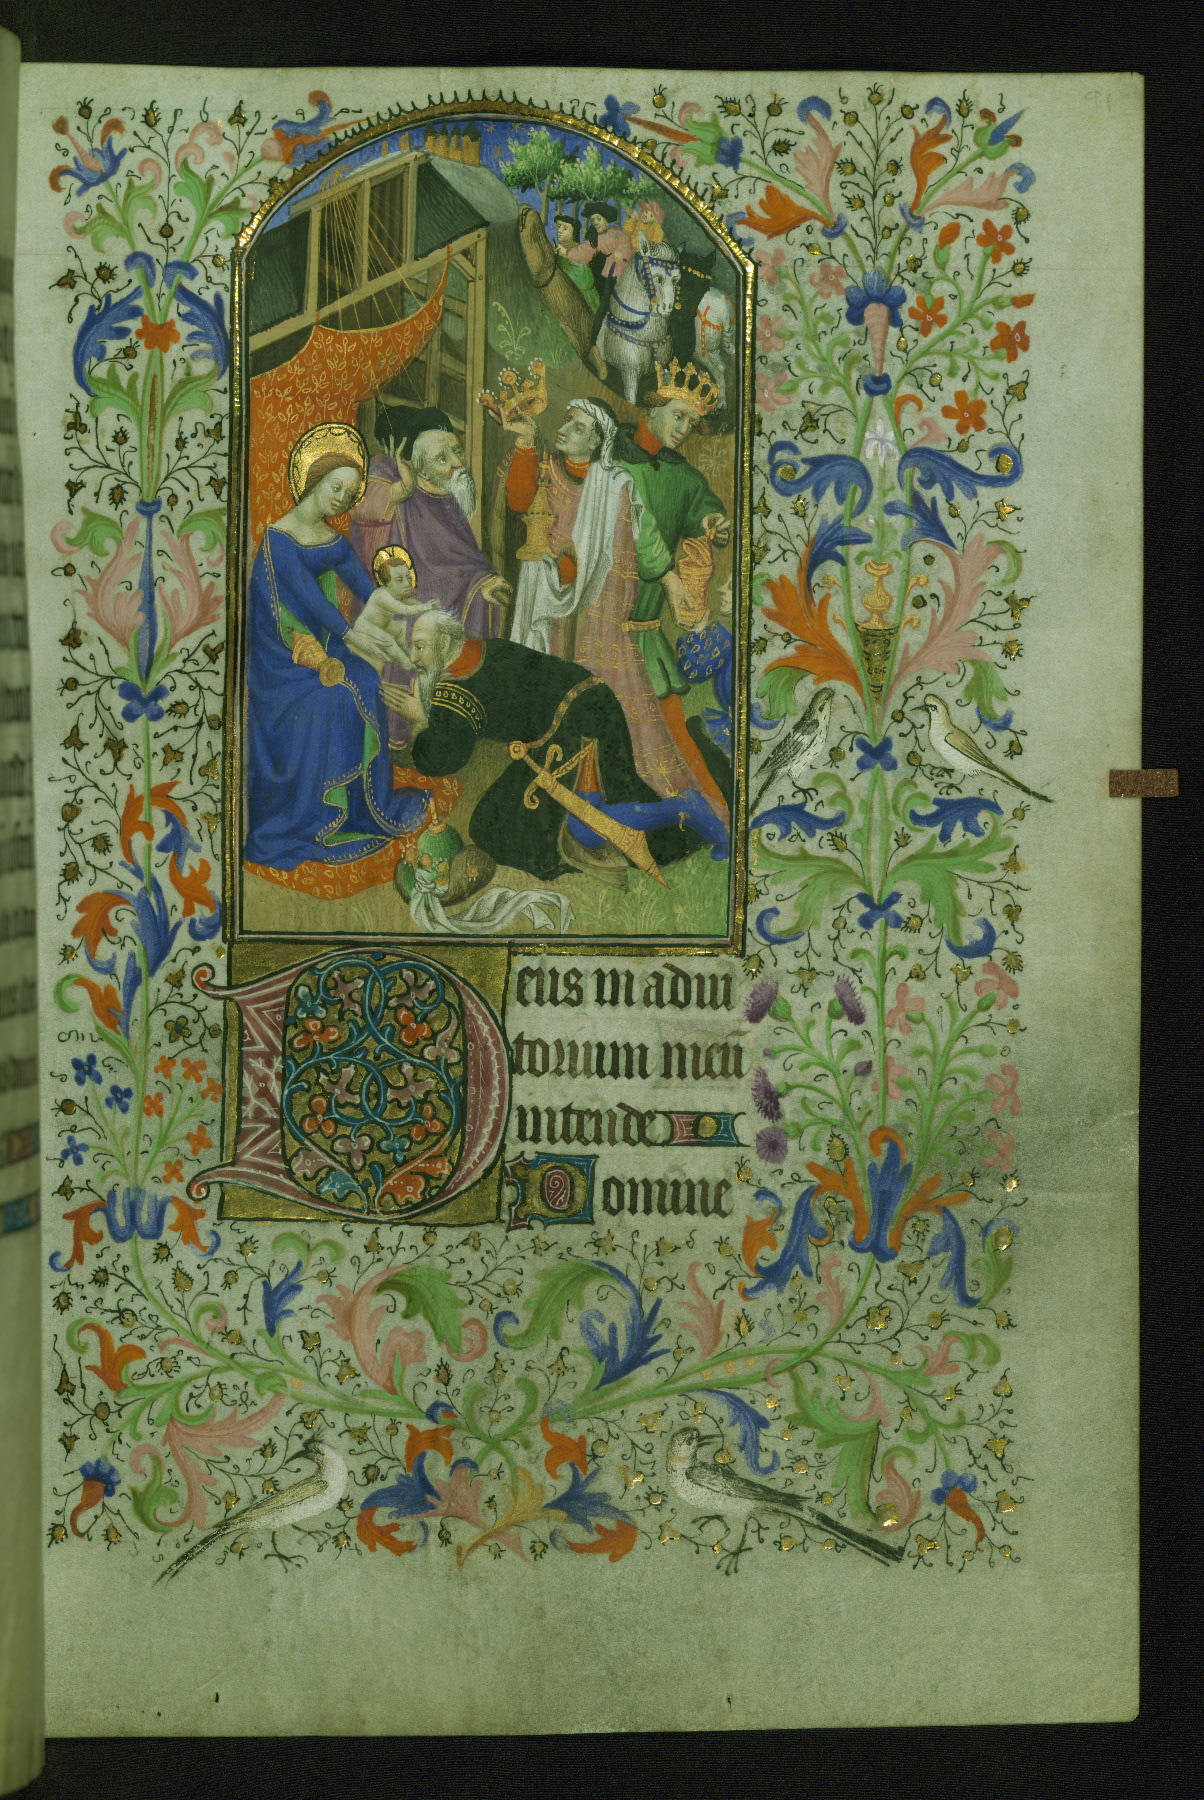 91
Deus in adiu
torium meū
intende
Domine